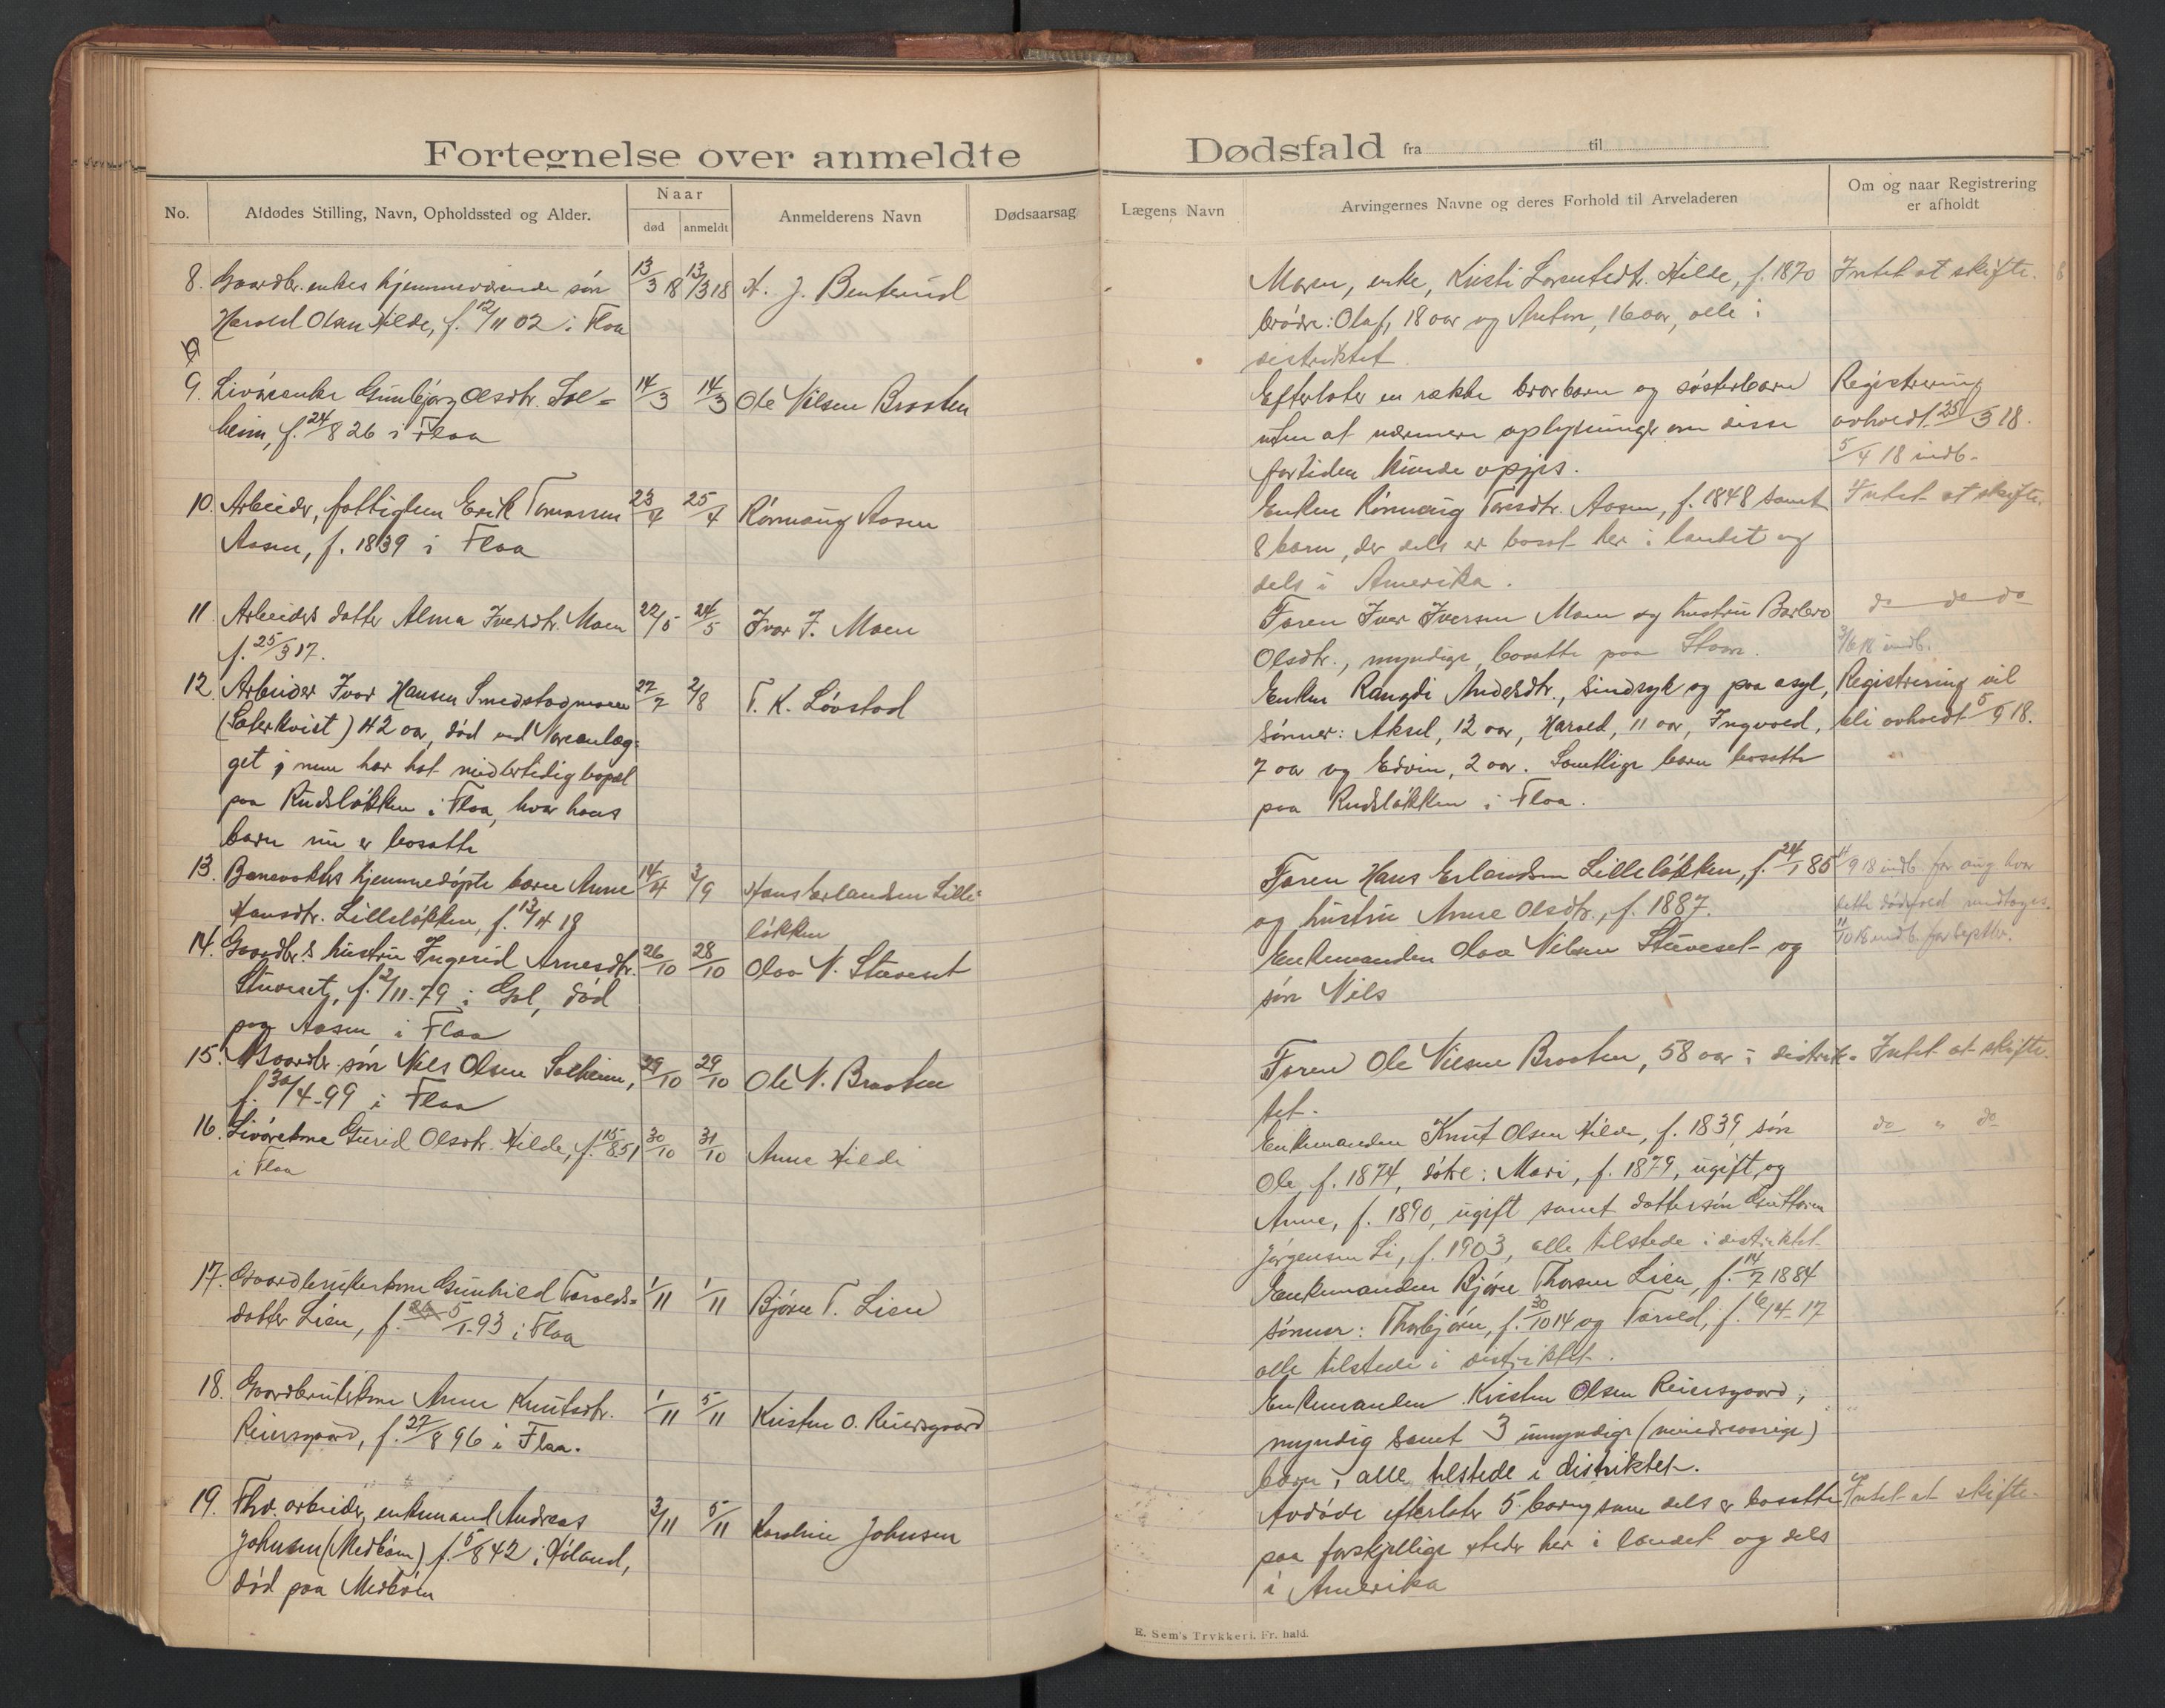 Fortegnelse over anmeldte Dødsfald fra til
No.
Afdødes Stilling, Navn, Opholdssted og Alder.
Naar
død anmeldt
Anmelderens Navn
Dødsaarsag
Lægens Navn
Arvingernes Navne og deres Forhold til Arveladeren
Om og naar Registrering
er afholdt
8. Gaardbr. enkes hjemmeværende søn 13/3 18 13/3 18 H. J. Benterud
Harald Olsen Hilde, f. 12/11 02 i Flaa
Moren, enke, Kristi Larsedtr. Hilde, f. 1870 Intet at skifte.
brødre: Olaf, 18 aar og Anton, 16 aar, alle i
distriktet
9. Livørenke Gunbjørg Olsdtr. Sol= 14/3 14/3 Ole Nilsen Braaten
heim, f. 24/8 26 i Flaa
Efterlater en række brorbarn og søsterbarn Registrering
uten at nærmere oplysninger om disse avholdt 25/3 18.
fortiden kunde opgis. 5/4 18 indb.
10. Arbeider, fattiglem Erik Tomassen 23/4 25/4 Rønnaug Aasen
Aasen, f. 1839 i Flaa
Enken Rønnaug Torsdtr. Aasen, f. 1848 samt Intet at skifte.
8 barn, der dels er bosat her i landet og
dels i Amerika.
11. Arbeiders datter Alma Iversdtr. Moen 22/5 24/5 Ivar J. Moen
f. 25/3 17.
Faren Iver Iversen Moen og hustru Barbro do do do
Olsdtr., myndige, bosatte paa Stavn. 3/6 18 indb.
12. Arbeider Ivar Hansen Smedstadmoen 27/7 2/8 T. K. Løvstad
(Saterkvist) 42 aar, død ved Voreanlæg=
get, men har hat midlertidig bopæl
paa Rudsløkken i Flaa, hvor hans
barn nu er bosatte
Enken Rangdi Andersdtr., sindsyk og paa asyl, Registrering vil
sønner: Aksel, 12 aar, Harald, 11 aar, Ingvald, bli avholdt 5/9 18.
7 aar og Edvin, 2 aar. Samtlige barn bosatte
paa Rudsløkken i Flaa.
13. Banevokters hjemmedøpte barn Anne 14/4 3/9 Hans Erlandsen Lille=
Hansdtr. Lilleløkken, f. 13/4 18 løkken
Faren Hans Erlandsen Lilleløkken, f. 24/1 85 9 18 indb. for aug hvor
og hustru Anne Olsdtr., f. 1887. dette dødsfald medtages.
14. Gaardbr.s hustru Ingerid Arnesdtr. 26/10 28/10 Olav N. Stuveset
Stuveset, f. 2/11-79 i Gol, død
paa Aasen i Flaa
Enkemanden Olav Nilsen Stuveset og 10 18 indb. for septbr.
søn Nils
15. Gaardbr. søn Nils Olsen Solheim, 29/10 29/10 Ole N. Braaten
f. 30/4-99 i Flaa
Faren Ole Nilsen Braaten, 58 aar i distrik= Intet at skifte.
tet.
16. Livørekone Gurid Olsdtr. Hilde, f. 15/8 51 30/10 31/10 Anne Hilde
i Flaa
Enkemanden Knut Olsen Hilde, f. 1839, søn do " do
Ole, f. 1874, døtre: Mari, f. 1879, ugift, og
Anne, f. 1890, ugift samt dattersøn Guttorm
Jørgensen Li, f. 1903, alle tilstede i distriktet
17. Gaardbrukerkone Gunhild Tarolds= 1/11 1/11 Bjørn T. Lien
datter Lien, f. 5/1-93 i Flaa
Enkemanden Bjørn Thorsen Lien, f. 14/7 1884
sønner: Thorbjørn, f. 30/10 14 og Tarold, f. 6/4-17
alle tilstede i distriktet.
18. Gaardbrukerkone Anne Knutsdtr. 1/11 5/11 Kristen O. Reiersgaard
Reiersgaard, f. 27/8 96 i Flaa.
Enkemanden Kristen Olsen Reiersgaard,
myndig samt 3 umyndige (mindreaarige)
børn, alle tilstede i distriktet.
19. Fhv. arbeider, enkemand Andreas 3/11 5/11 Karoline Johnsen
Johnsen (Medbøen) f. 5/8 42 i Høland,
død paa Medbøen
Avdøde efterlater 5 barn, som dels er bosatte Intet at skifte.
paa forskjellige steder her i landet og dels
i Amerika
E. Sem's Trykkeri. Fr. hald.